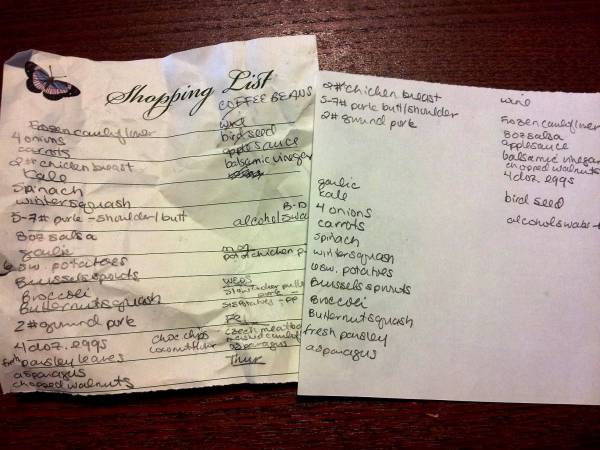 Shopping List
COFFEE BEANS
Frozen cauliflower
4 onions
carrots
2# chicken breast
Kale
spinach
wintersquash
5-7# pork - shoulder/butt
8oz salsa
garlic
6 sw. potatoes
Brussels sprouts
Broccoli
Butternut squash
2# ground pork
4 doz. eggs
fresh parsley leaves
asparagus
chopped walnuts
choc chips
wine
bird seed
applesauce
balsamic vinegar
B-D
alcohol swa
mon
pot of chicken
Weds
slow cooker
pork -
asparagus
Thur
2# chicken breast
5-7# pork butt/shoulder
2# ground pork
garlic
kale
4 onions
carrots
spinach
wintersquash
6 sw. potatoes
Brussels sprouts
Broccoli
Butternut squash
fresh parsley
asparagus
wine
Frozen cauliflower
8oz salsa
applesauce
balsamic vinegar
chopped walnuts
4 doz. eggs
bird seed
alcohol swabs -